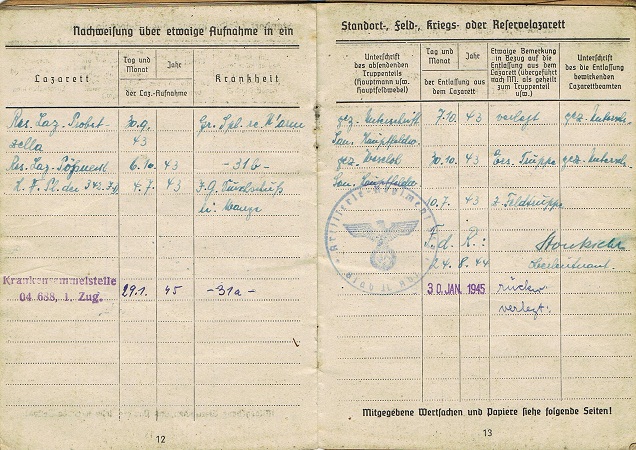 Nachweisung über etwaige Aufnahme in ein
Lazarett
Tag und Monat
Jahr
der Laz.-Aufnahme
Krankheit
Res. Laz. Probst-
zella
30.9.
43
Gr. Spl. re. 
Res. Laz. Pößneck
6.10.
43
-31b-
4.7.
43
Krankensammelstelle
04 688, 1. Zug.
29.1.
45
-31a-
12
Standort-, Feld-, Kriegs- oder Reservelazarett
Unterschrift
des absendenden
Truppenteils
(Hauptmann u/w.
Hauptfeldwebel)
Tag und Monat
Jahr
der Entlassung aus
dem Lazarett
Etwaige Bemerkung
in Bezug auf die
Entlassung aus dem
Lazarett (übergeführt
nach NN. als geheilt
zum Truppenteil
usw.)
Unterschrift
des die Entlassung
bewirkenden
Lazarettbeamten
gez. Unterschrift
7.10.
43
verlegt
gez. Untersch.
San. Hauptfeldw.
gez.
30.10.
43
Ers. Truppe
gez. Untersch.
San. Hauptfeldw.
10.7.
43
z. Feldtruppe
Artillerie-Regiment
F. d. R.:
24.8.44
Oberleutnant.
30. JAN. 1945
rückw.
verlegt.
Mitgegebene Wertsachen und Papiere siehe folgende Seiten!
13